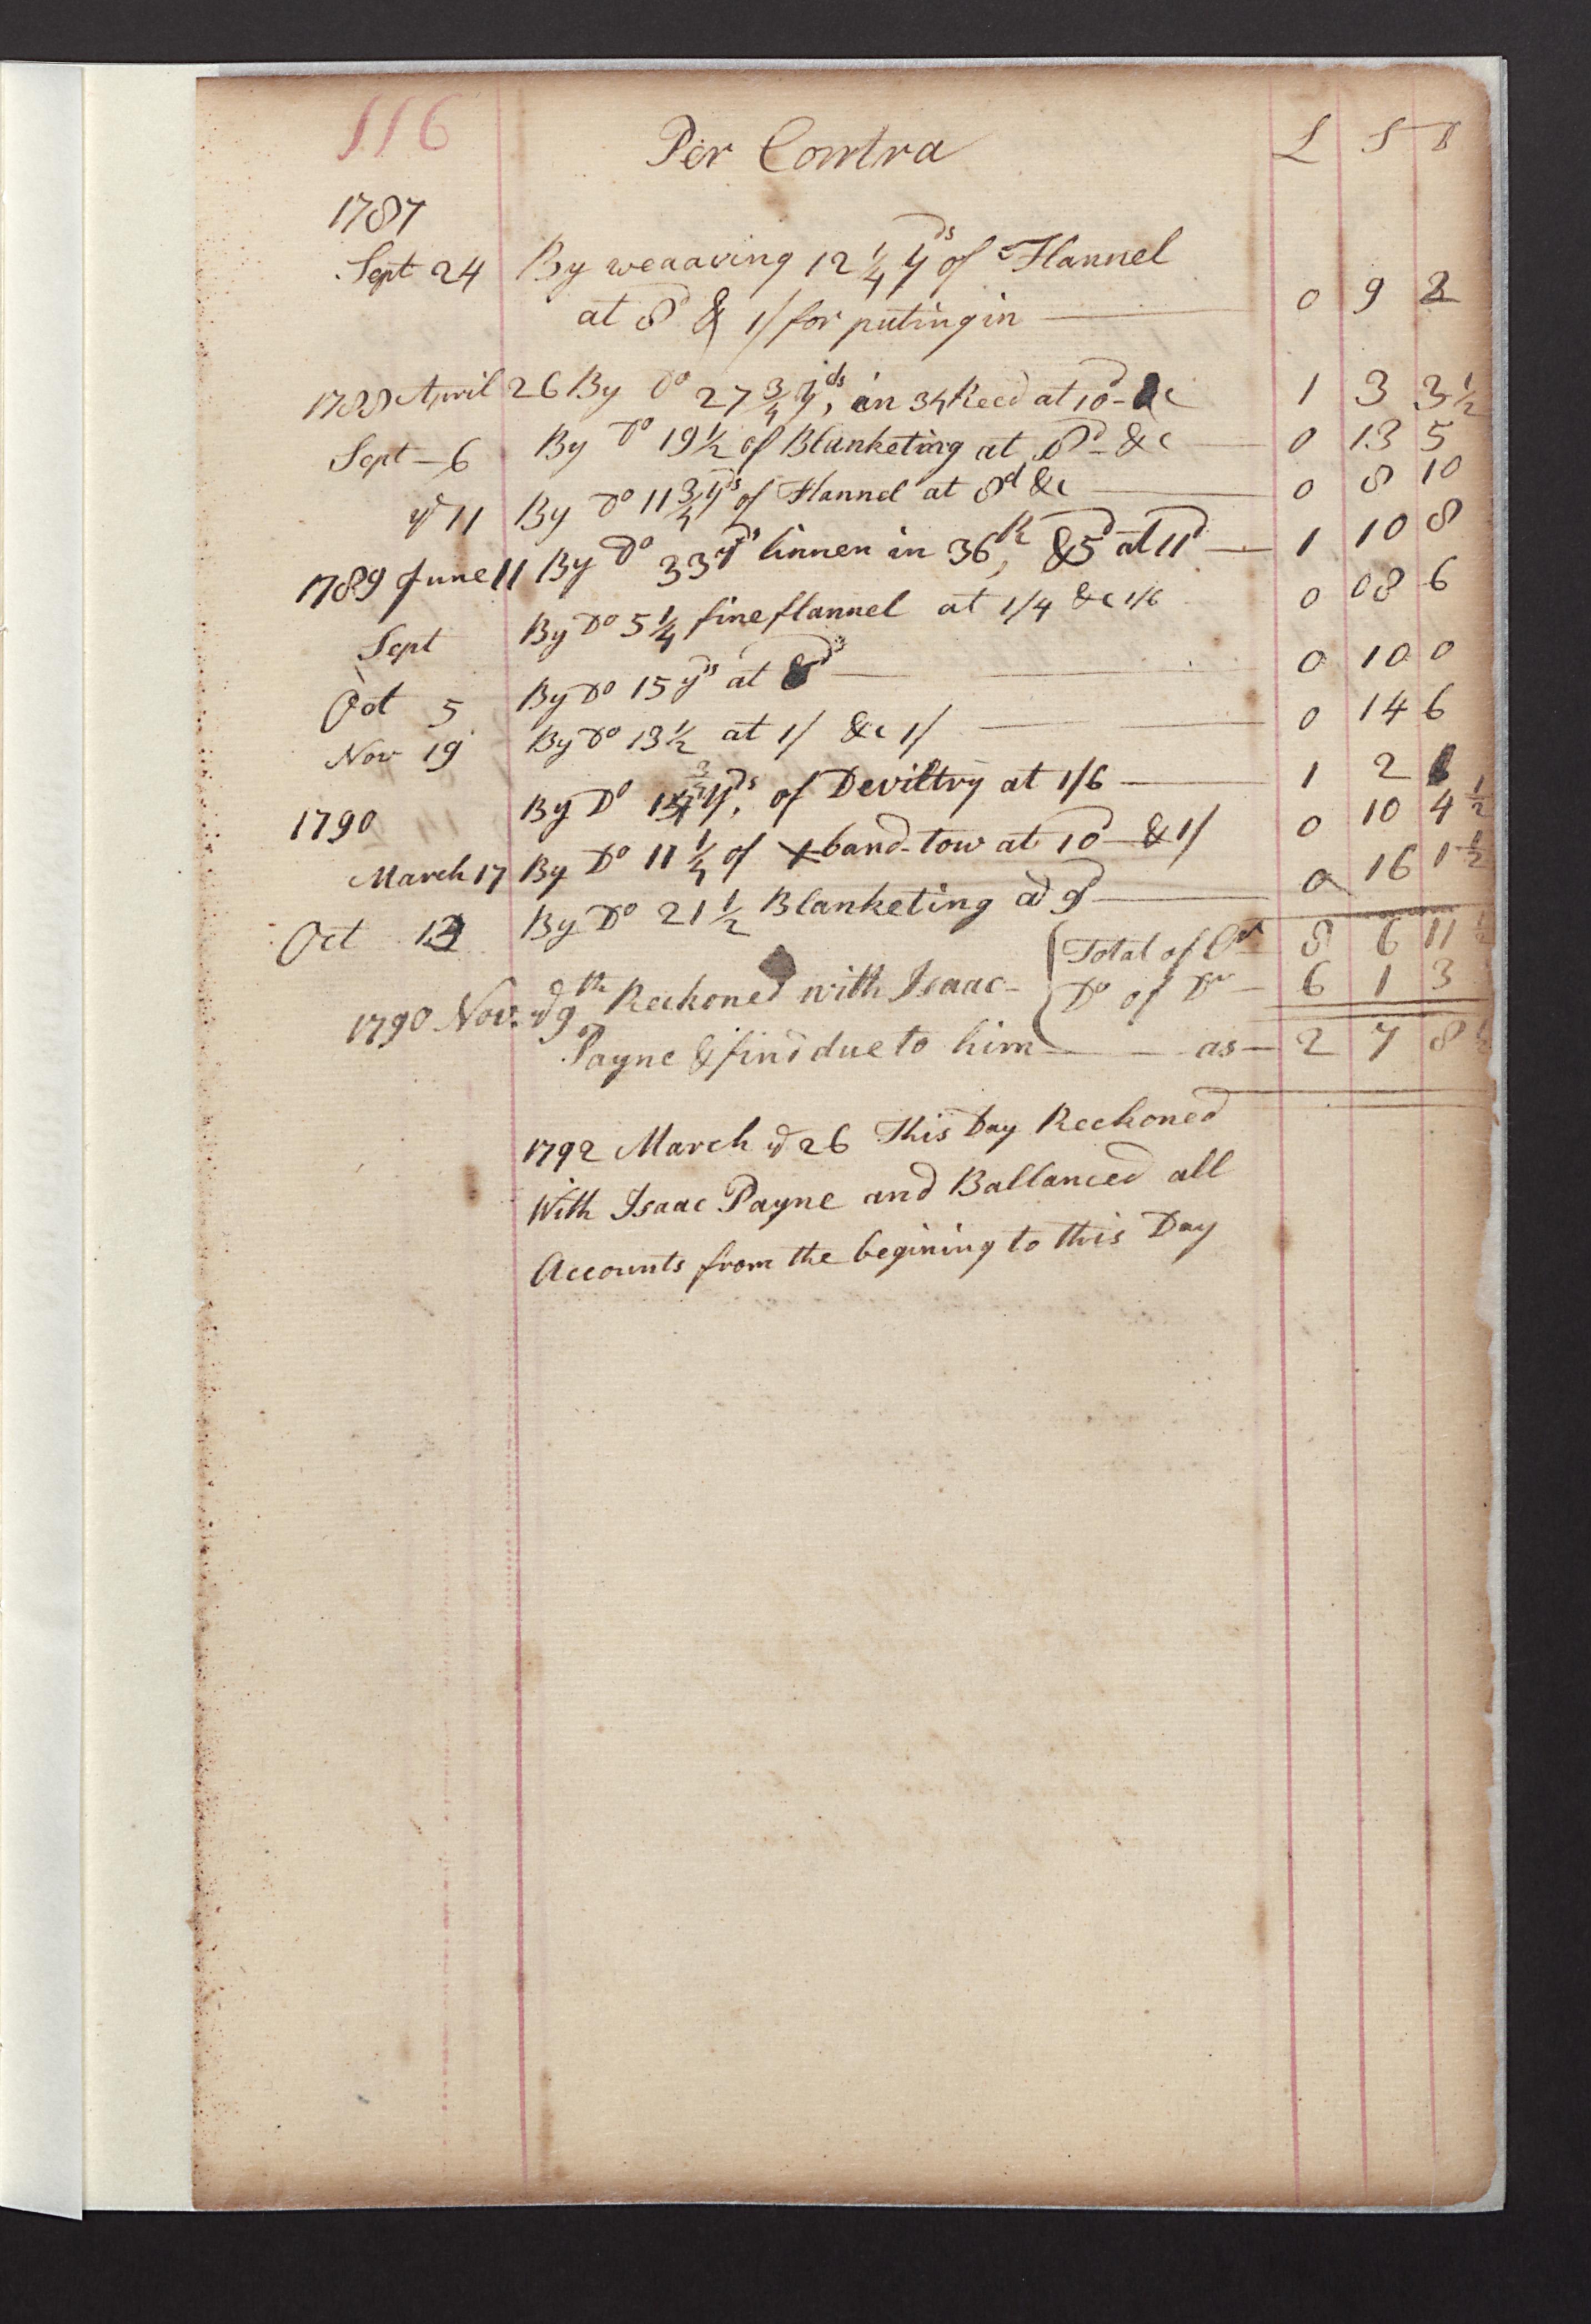 116 Per Contra L S D
1787
Sept 24 By weaaving 12 1/4 yds of Flannel
at 8d & 1/ for puting in 0 9 2
1788 April 26 By Do 27 3/4 yds, in 34 Reed at 10d &c 1 3 3 1/2
Sept 6 By Do 19 1/2 of Blanketing at 8d &c 0 13 5
ye 11 By Do 11 3/4 yds of Flannel at 8d &c 0 8 10
1789 June 11 By Do 33 yds linnen in 36 R, &5d at 11d 1 10 8
Sept By Do 5 1/4 fine flannel at 1/4 &c 1/6 0 08 6
Oct 5 By Do 15 yds at 8d 0 10 0
Nov 19 By Do 13 1/2 at 1/ &c 1/ 0 14 6
1790 By Do yds, of Deviltry at 1/6 1 2
March 17 By Do 11 1/4 of band-tow at 10d & 1/ 0 10 4 1/2
Oct By Do 21 1/2 Blanketing ad 9d 0 16 1 1/2
Total of Cr 8 6 11 1/2
1790 Nov. ye 9th Reckoned with Isaac Do of Dr 6 1 3
Payne & find due to him as 2 7 8 1/2
1792 March ye 26 This Day Reckoned
With Isaac Payne and Ballanced all
Accounts from the begining to this Day